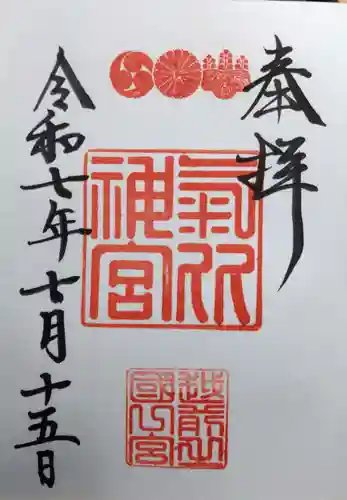 奉拝
氣比
神宮
越前
國
宮
令和七年七月十五日